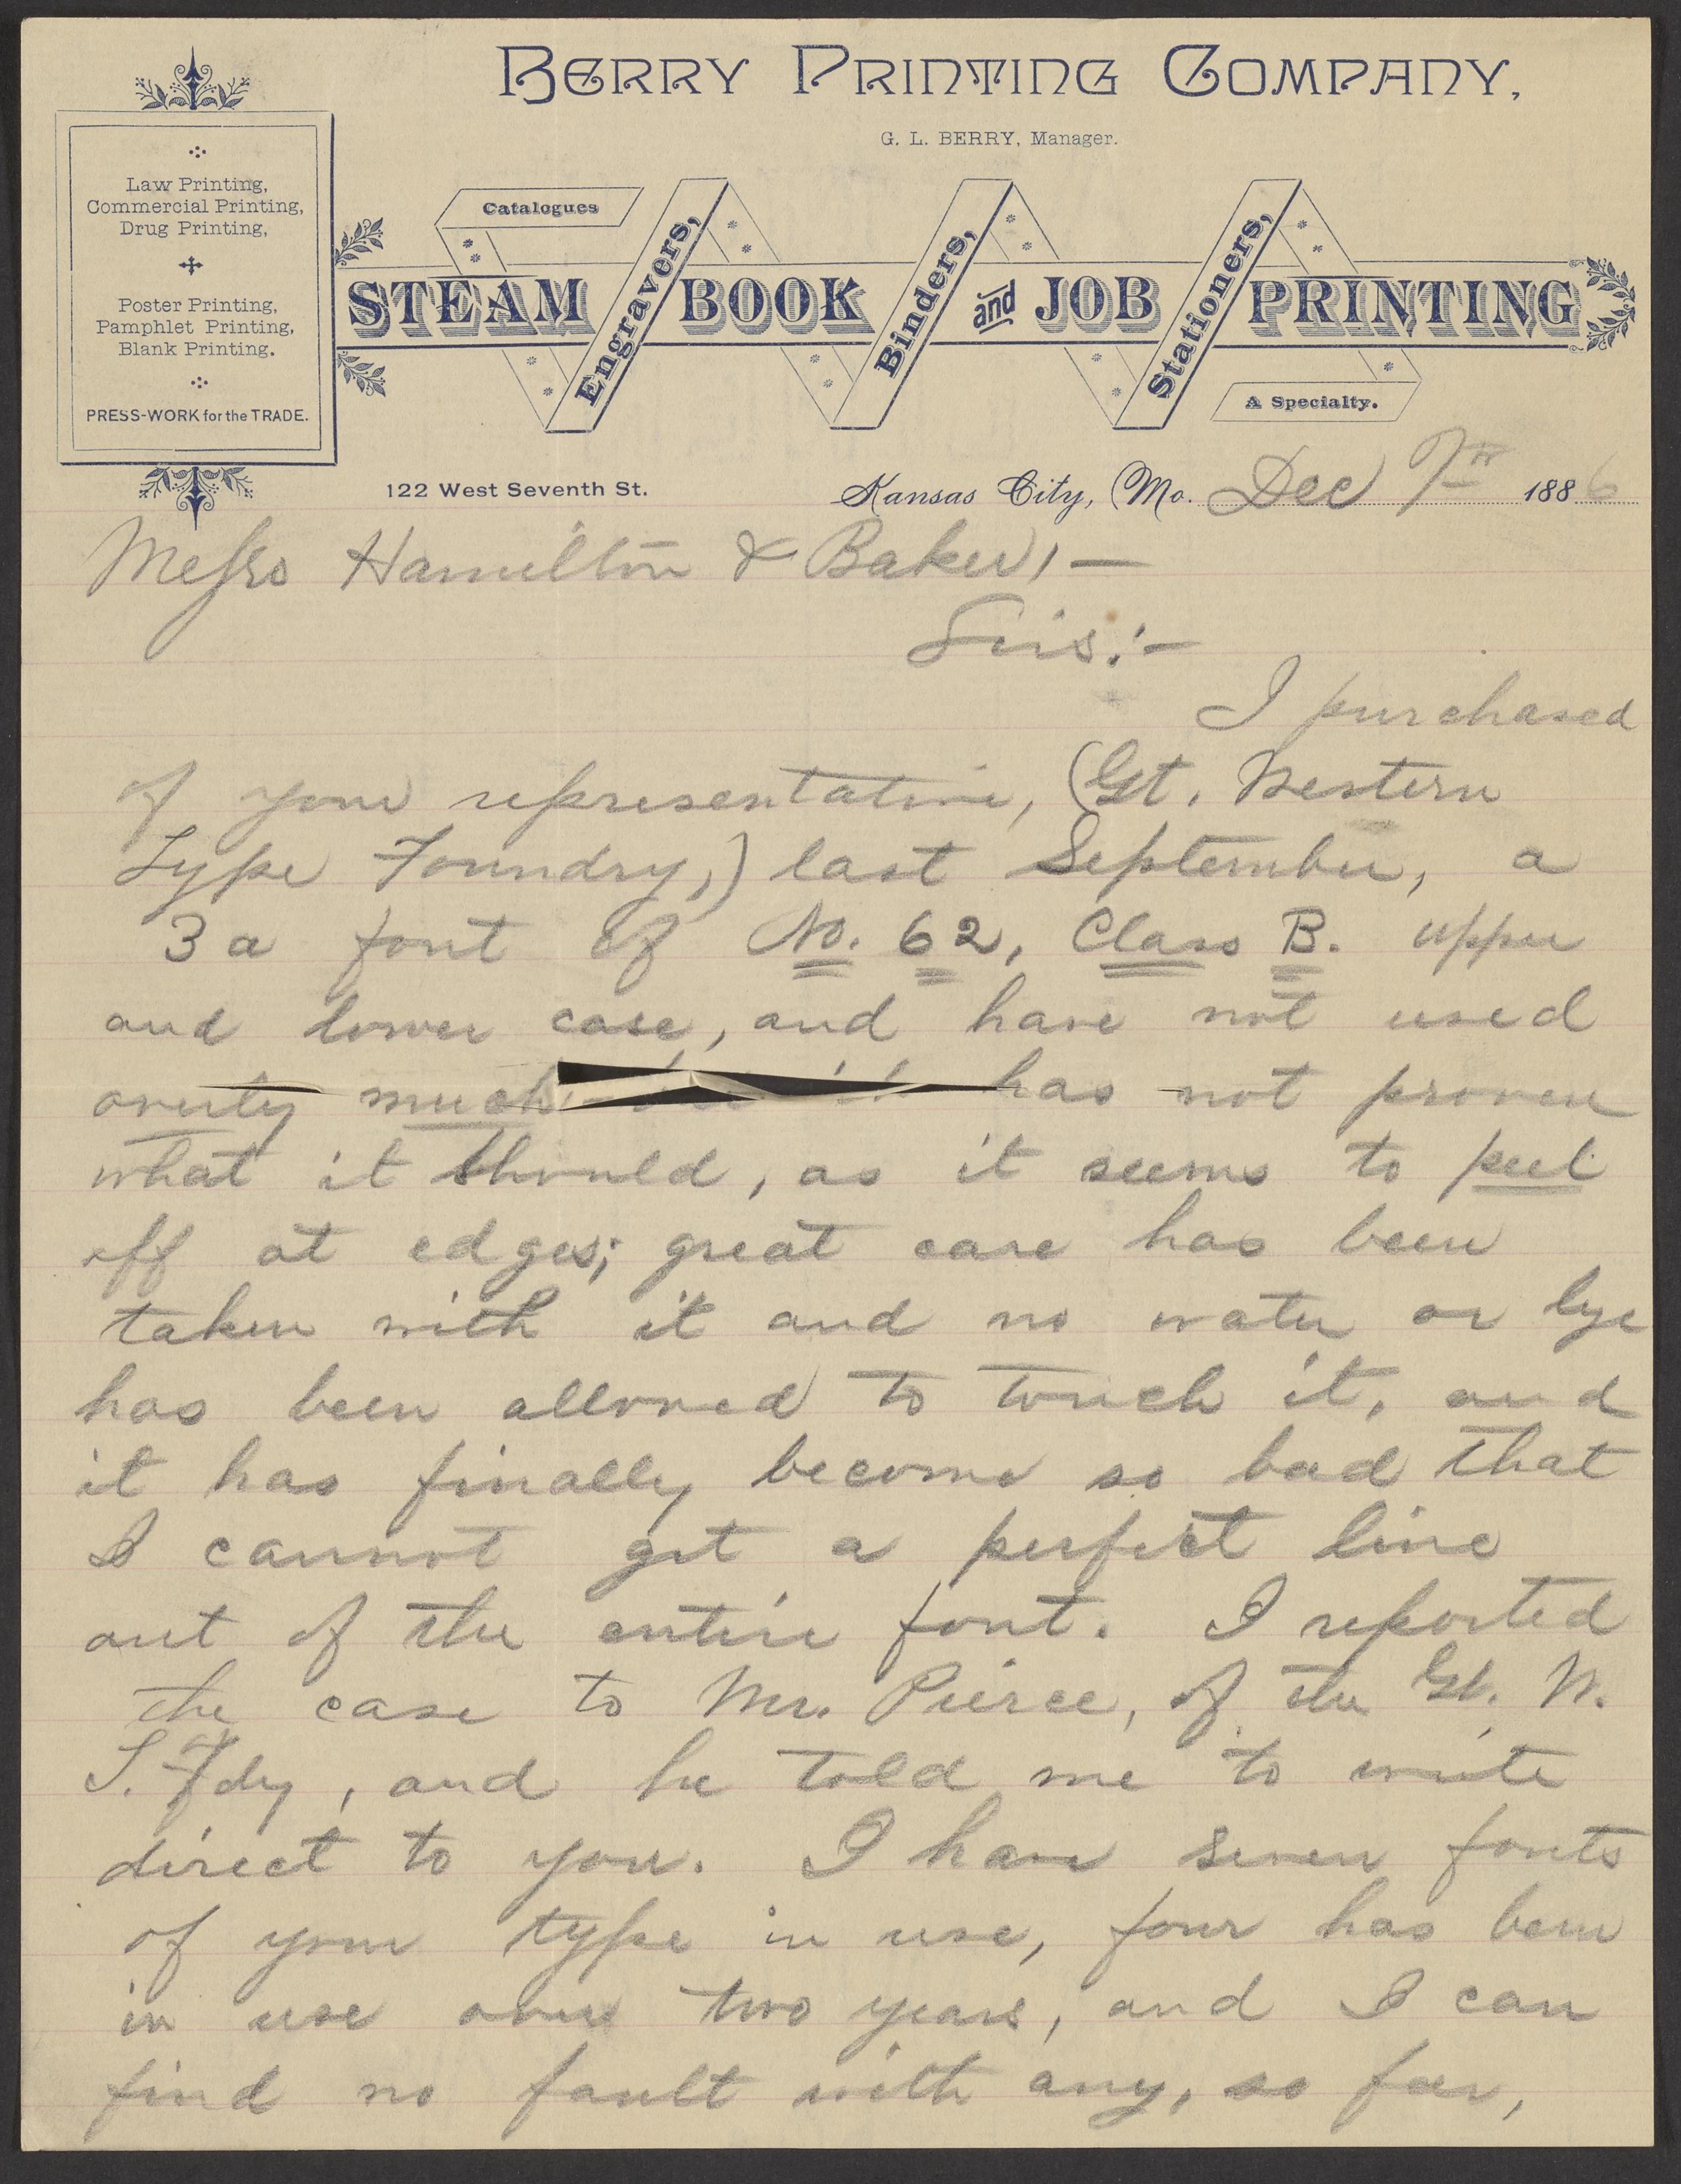 BERRY PRINTING COMPANY,
G. L. BERRY, Manager.
Law Printing,
Commercial Printing,
Drug Printing,
Poster Printing,
Pamphlet Printing,
Blank Printing.
PRESS-WORK for the TRADE.
Catalogues
STEAM Engravers, BOOK Binders, and JOB Stationers, PRINTING
A Specialty.
122 West Seventh St.
Kansas City, Mo. Dec 7th 1886
Messrs Hamilton & Baker, —
Sirs:—
I purchased
of your representative, (Gt. Western
Type Foundry,) last September, a
3a font of No. 62, Class B. upper
and lower case, and have not used
overly much has not proven
what it should, as it seems to peel
off at edges; great care has been
taken with it and no water or lye
has been allowed to touch it, and
it has finally become so bad that
I cannot get a perfect line
out of the entire font. I reported
the case to Mr. Pierce, of the Gt. W.
T. Fdy, and he told me to write
direct to you. I have seven fonts
of your type in use, four has been
in use over two years, and I can
find no fault with any, so far,